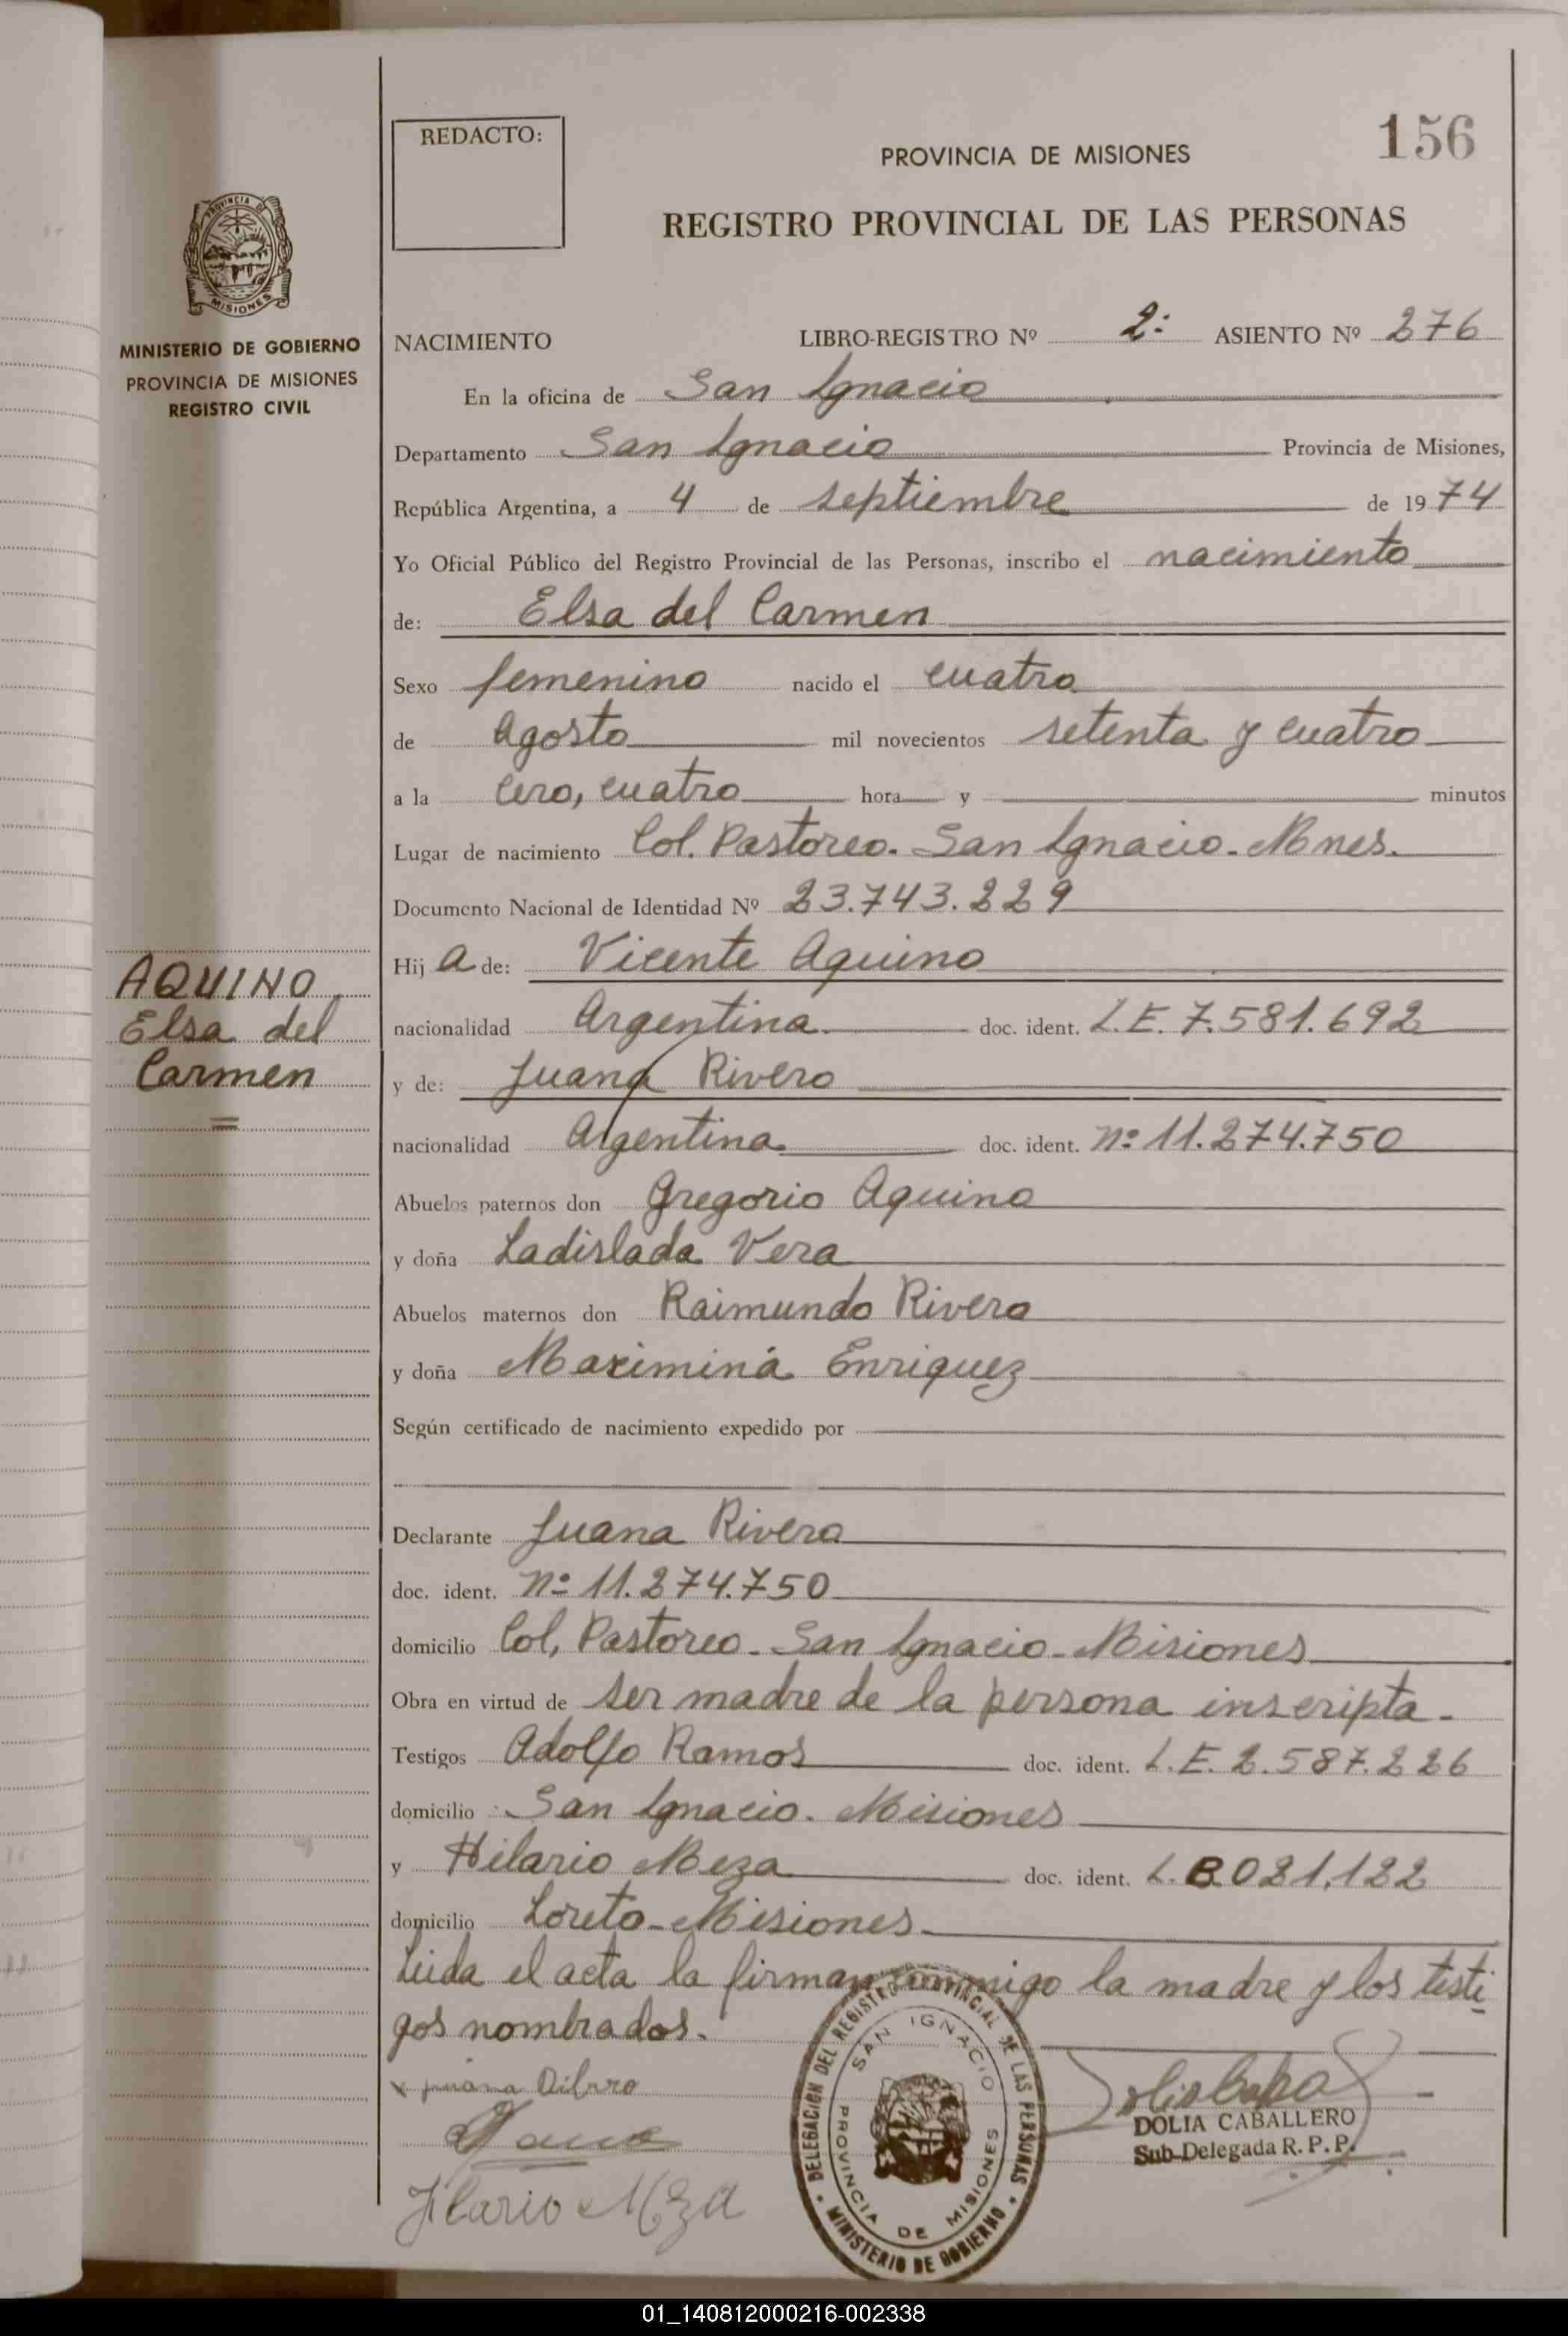 REDACTO:
156
PROVINCIA DE MISIONES
REGISTRO PROVINCIAL DE LAS PERSONAS
PROVINCIA DE
MISIONES
MINISTERIO DE GOBIERNO
PROVINCIA DE MISIONES
REGISTRO CIVIL
NACIMIENTO LIBRO-REGISTRO Nº 2: ASIENTO Nº 276
En la oficina de San Ignacio
Departamento San Ignacio Provincia de Misiones,
República Argentina, a 4 de septiembre de 1974
Yo Oficial Público del Registro Provincial de las Personas, inscribo el nacimiento
de: Elsa del Carmen
Sexo femenino nacido el cuatro
de Agosto mil novecientos setenta y cuatro
a la cero, cuatro hora y minutos
Lugar de nacimiento Col. Pastoreo. San Ignacio. Mnes.
Documento Nacional de Identidad Nº 23.743.229
Hija de: Vicente Aquino
nacionalidad Argentina doc. ident. L.E. 7.581.692
y de: Juana Rivero
nacionalidad Argentina doc. ident. nº 11.274.750
Abuelos paternos don Gregorio Aquino
y doña Ladislada Vera
Abuelos maternos don Raimundo Rivero
y doña Maximina Enriquez
Según certificado de nacimiento expedido por
Declarante Juana Rivero
doc. ident. nº 11.274.750
domicilio Col, Pastoreo - San Ignacio - Misiones
Obra en virtud de ser madre de la persona inscripta -
Testigos Adolfo Ramos doc. ident. L.E. 2.587.226
domicilio San Ignacio. Misiones
y Hilario Meza doc. ident. 021.122
domicilio Loreto - Misiones
Leida el acta la firman conmigo la madre y los testi
gos nombrados.
AQUINO
Elsa del
Carmen
x Juana
Hilario Meza
DELEGACION DEL REGISTRO PROVINCIAL DE LAS PERSONAS
MINISTERIO DE GOBIERNO
SAN IGNACIO
PROVINCIA DE MISIONES
DOLIA CABALLERO
Sub-Delegada R. P. P.
01_140812000216-002338